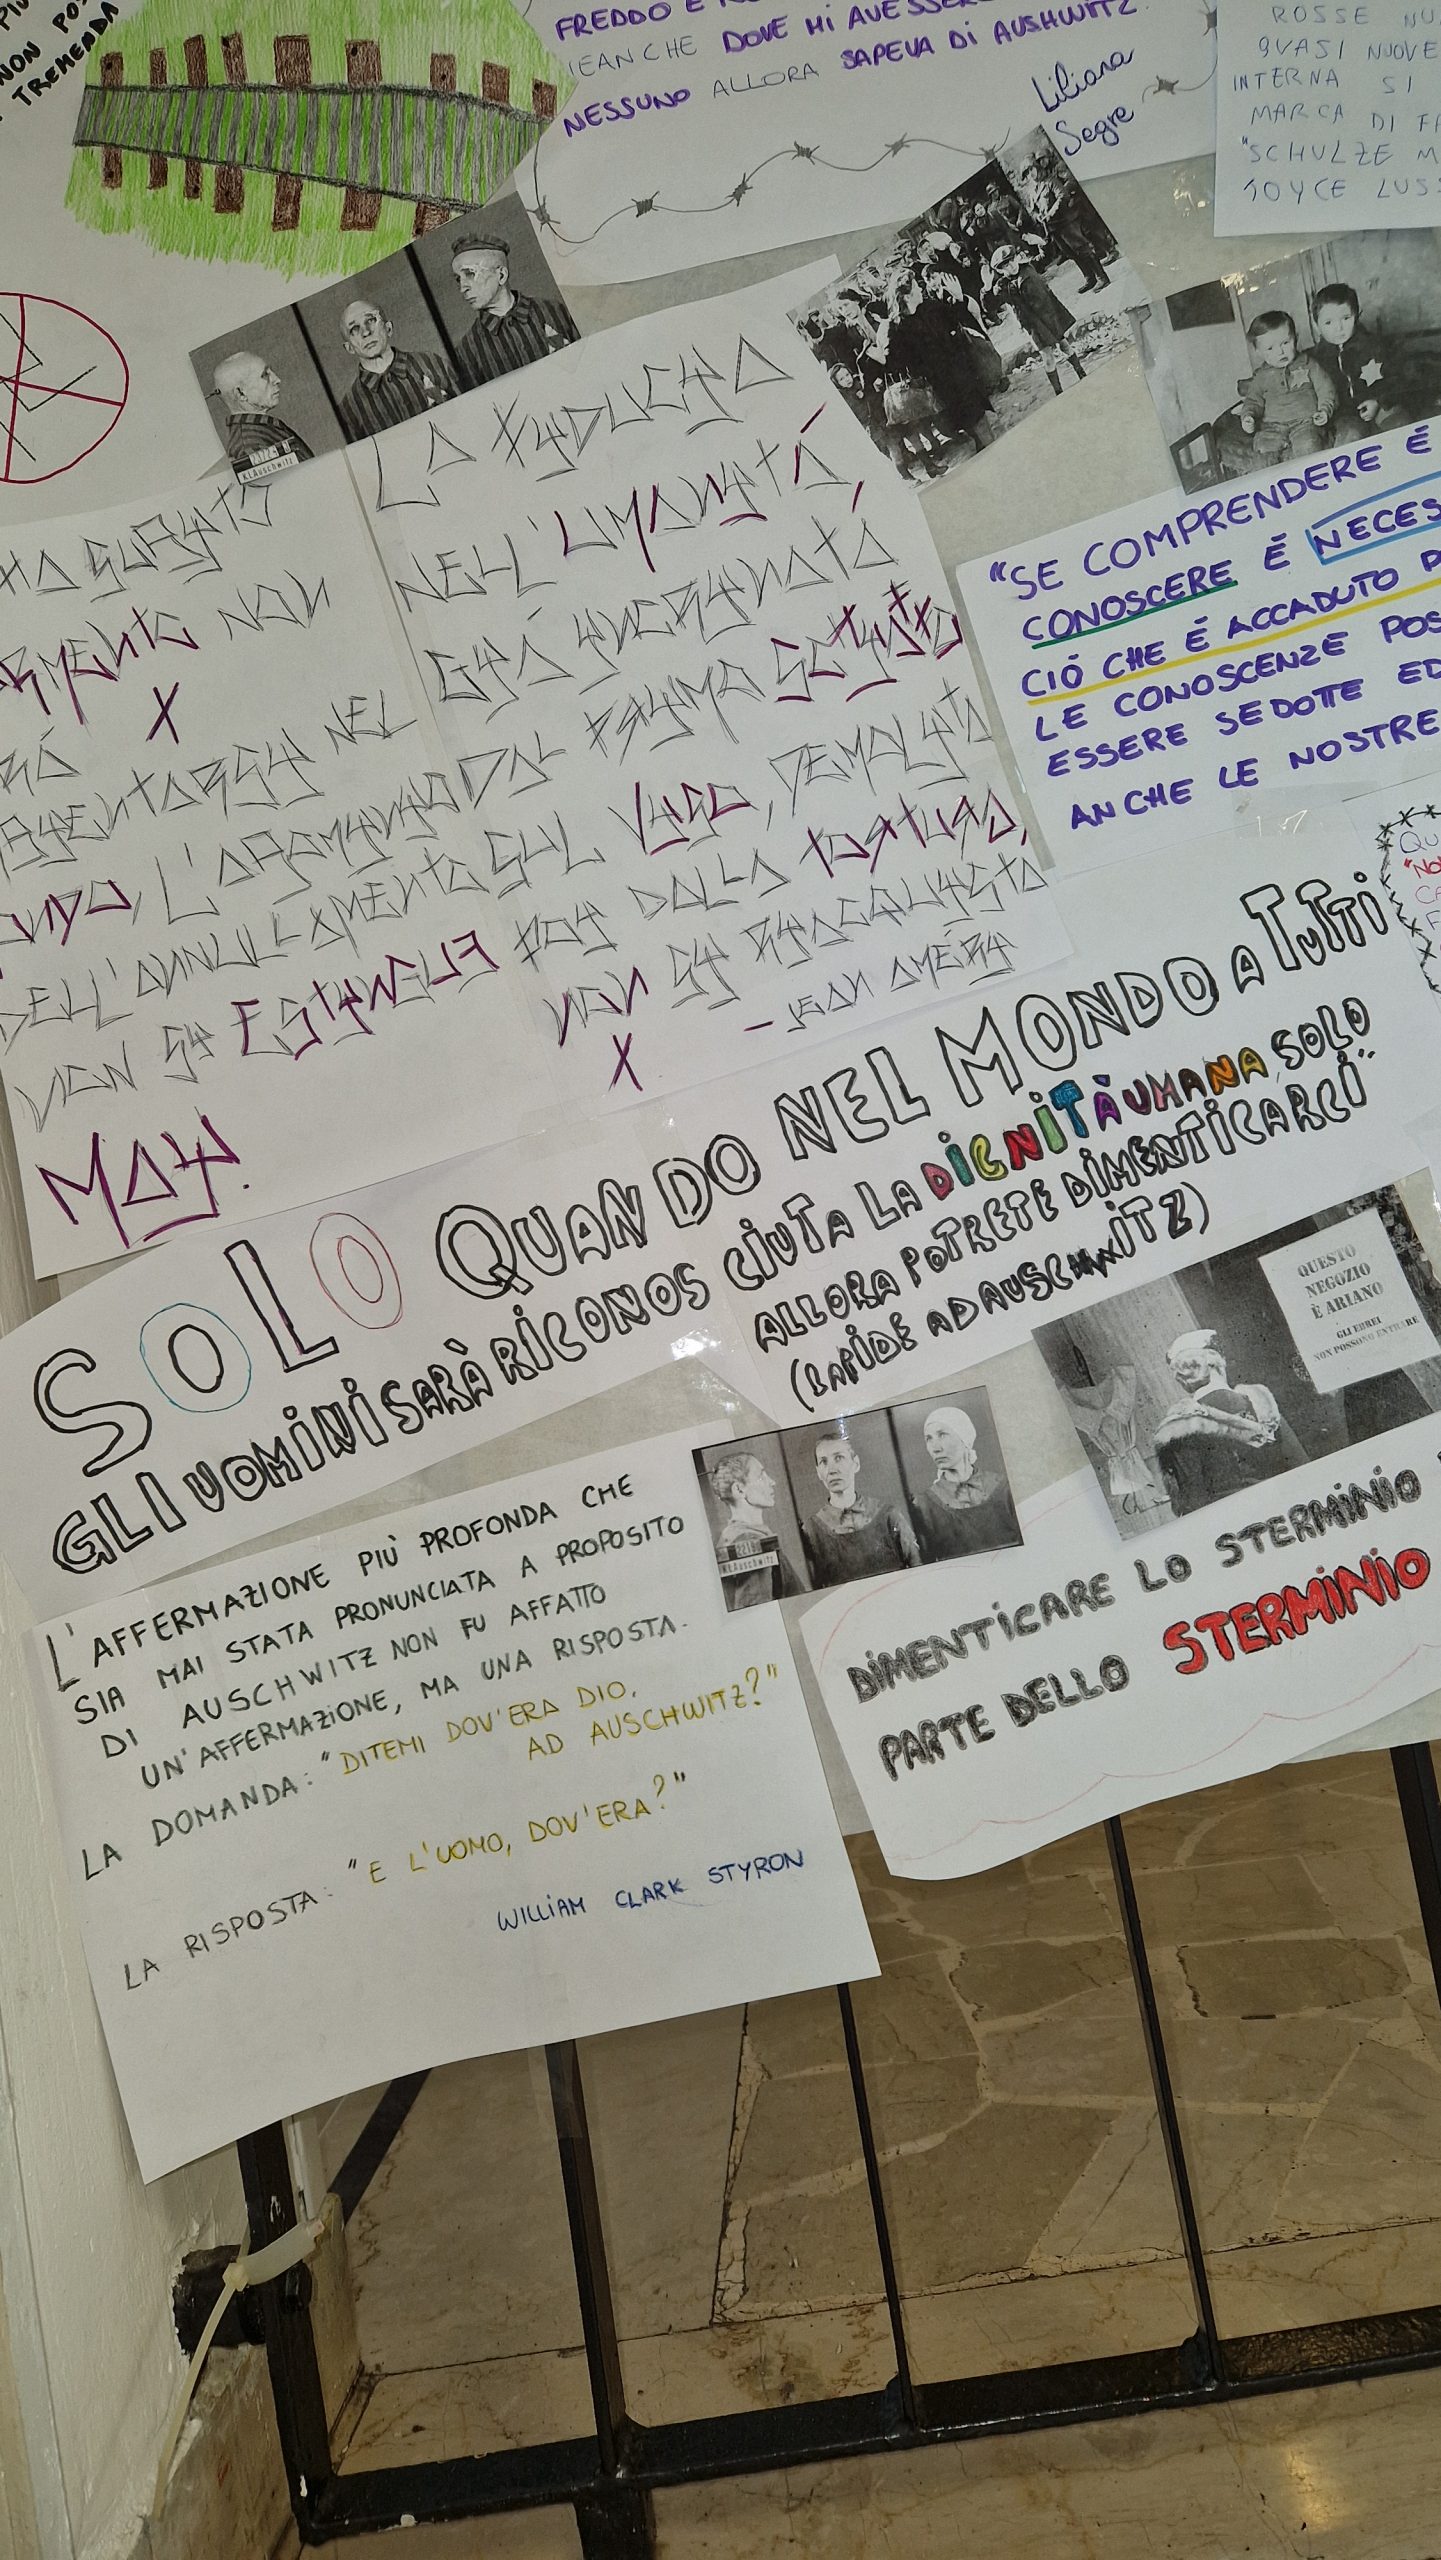 NON POS
TREMENDA
FREDDO E
DOVE MI AVESSERO
NESSUNO ALLORA SAPEVA DI AUSHWITZ.
Liliana
Segre
ROSSE
QUASI NUOVE
INTERNA SI
MARCA DI
"SCHULZE M
JOYCE LUSS
KLAuschwitz
HA SUBITO
NON
X
NEL
L'ABOMINIO
DELL'ANNULLAMENTO
NON SI ESTINGUE
MAI.
LA FIDUCIA
NELL'UMANITÁ,
GIÁ INCRINATA
DAL PRIMO SCHIAFFO
SUL VISO, DEMOLITA
POI DALLA TORTURA,
NON SI RIACQUISTA
X
- JEAN AMÉRY
"SE COMPRENDERE É
CONOSCERE É NECES
CIÓ CHE É ACCADUTO P
LE CONOSCENZE POS
ESSERE SEDOTTE ED
ANCHE LE NOSTRE
QU
"NO
CA
SOLO QUANDO NEL MONDO A TUTTI
GLI UOMINI SARÀ RICONOSCIUTA LA DIGNITÀ UMANA, SOLO
ALLORA POTRETE DIMENTICARCI"
(LAPIDE AD AUSCHWITZ)
QUESTO
NEGOZIO
È ARIANO
GLI EBREI
NON POSSONO ENTRARE
KLAuschwitz
L'AFFERMAZIONE PIÙ PROFONDA CHE
SIA MAI STATA PRONUNCIATA A PROPOSITO
DI AUSCHWITZ NON FU AFFATTO
UN'AFFERMAZIONE, MA UNA RISPOSTA.
LA DOMANDA: "DITEMI DOV'ERA DIO,
AD AUSCHWITZ?"
LA RISPOSTA: "E L'UOMO, DOV'ERA?"
WILLIAM CLARK STYRON
DIMENTICARE LO STERMINIO
PARTE DELLO STERMINIO